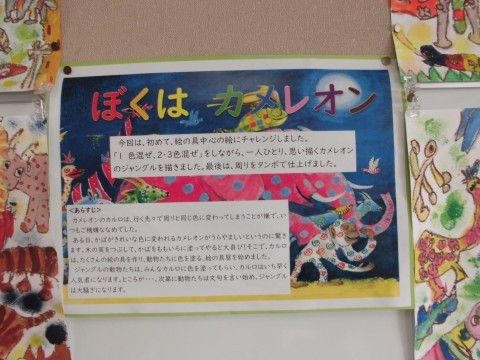 ぼくは カメレオン
今回は、初めて、絵の具中心の絵にチャレンジしました。
「1 色混ぜ、2・3色混ぜ」をしながら、一人ひとり、思い描くカメレオン
のジャングルを描きました。最後は、周りをタンポで仕上げました。
<あらすじ>
カメレオンのカルロは、行く先々で周りと同じ色に変わってしまうことが嫌で、い
つもご機嫌ななめでした。
ある日、かばがきれいな色に変われるカメレオンがうらやましいというのに驚き
ます。木の実をつぶして、かばをももいろに塗ってやると大喜び!そこで、カルロ
は、たくさんの絵の具を作り、動物たちに色を塗る、絵の具屋を始めました。
ジャングルの動物たちは、みんなカルロに色を塗ってもらい、カルロはいち早く
人気者になります。ところが・・・、次第に動物たちは文句を言い始め、ジャングル
は大騒ぎになります。